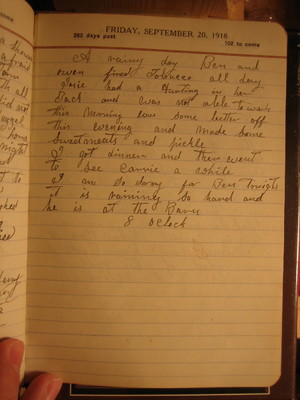 FRIDAY, SEPTEMBER 20, 1918
263 days past
102 to come
A rainy day Ben and
Owen fired Tobacco all day
Josie had a Hurting in her
Back and was not able to work
this Morning was some better off
this evening and Made some
Sweetmeats and pickle
I got dinner and then went
to See Carrie a while
I am So Sorry for Ben tonight
it is raining So hard and
he is at the Barn
8 oClock